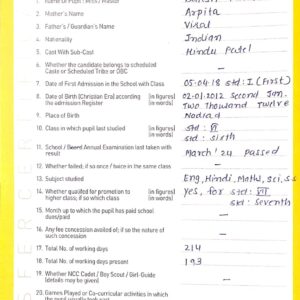 1. Name of Pupil : Miss / Master
2. Mother's Name Arpita
3. Father's / Guardian's Name Viral
4. Nationality Indian
5. Cast With Sub-Cast Hindu Patel
6. Whether the candidate belongs to scheduled
Caste or Scheduled Tribe or OBC —
7. Date of First Admission in the School with Class 05-04-18 std : I (First)
8. Date of Birth (Christian Era) according [in figures] 02-01-2012 Second Jan.
the admission Register [in words] Two Thousand Twelve
9. Place of Birth Nadiad
10. Class in which pupil last studied [in figures] std : VI
[in words] std : sixth
11. School / Board Annual Examination last taken with
result March' 24 passed
12. Whether failed, if so once / twice in the same class —
13. Subject studied Eng, Hindi, Maths, Sci, S.S
14. Whether qualified for promotion to [in figures] yes, for std : VII
higher class; if so which class [in words] std : seventh
15. Month up to which the pupil has paid school
dues/paid —
16. Any fee concession availed of; if so the nature of
such concession —
17. Total No. of working days 214
18. Total No. of working days present 193
19. Whether NCC Cadet / Boy Scout / Girl-Guide
(details may be given) —
20. Games Played or Co-curricular activities in which